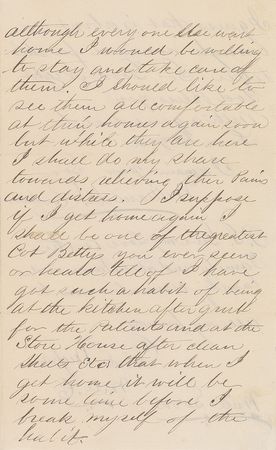 although every one else want
home I would be willing
to stay and take care of
them. I should like to
see them all comfortable
at their homes again soon
but while they are here
I shall do my share
towards relieving their Pains
and distress. I suppose
if I get home again I
shall be one of the greatest
Cot Bettys you ever seen
or heard tell of I have
got such a habit of being
at the kitchen after gruel
for the patients and at the
Store House after clean
Sheets Etc that when I
get home it will be
some time before I
break myself of the
habit.